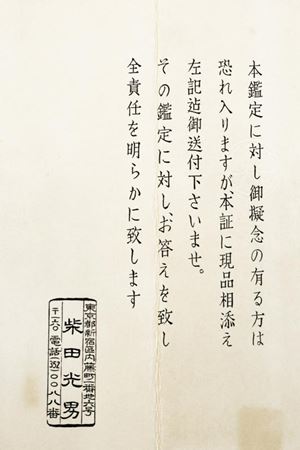 本鑑定に対し御擬念の有る方は
恐れ入りますが、本証に現品相添え
左記迠御送付下さいませ。
その鑑定に対し、お答えを致し
全責任を明らかに致します
東京都新宿區内藤町一番地六号
柴田光男